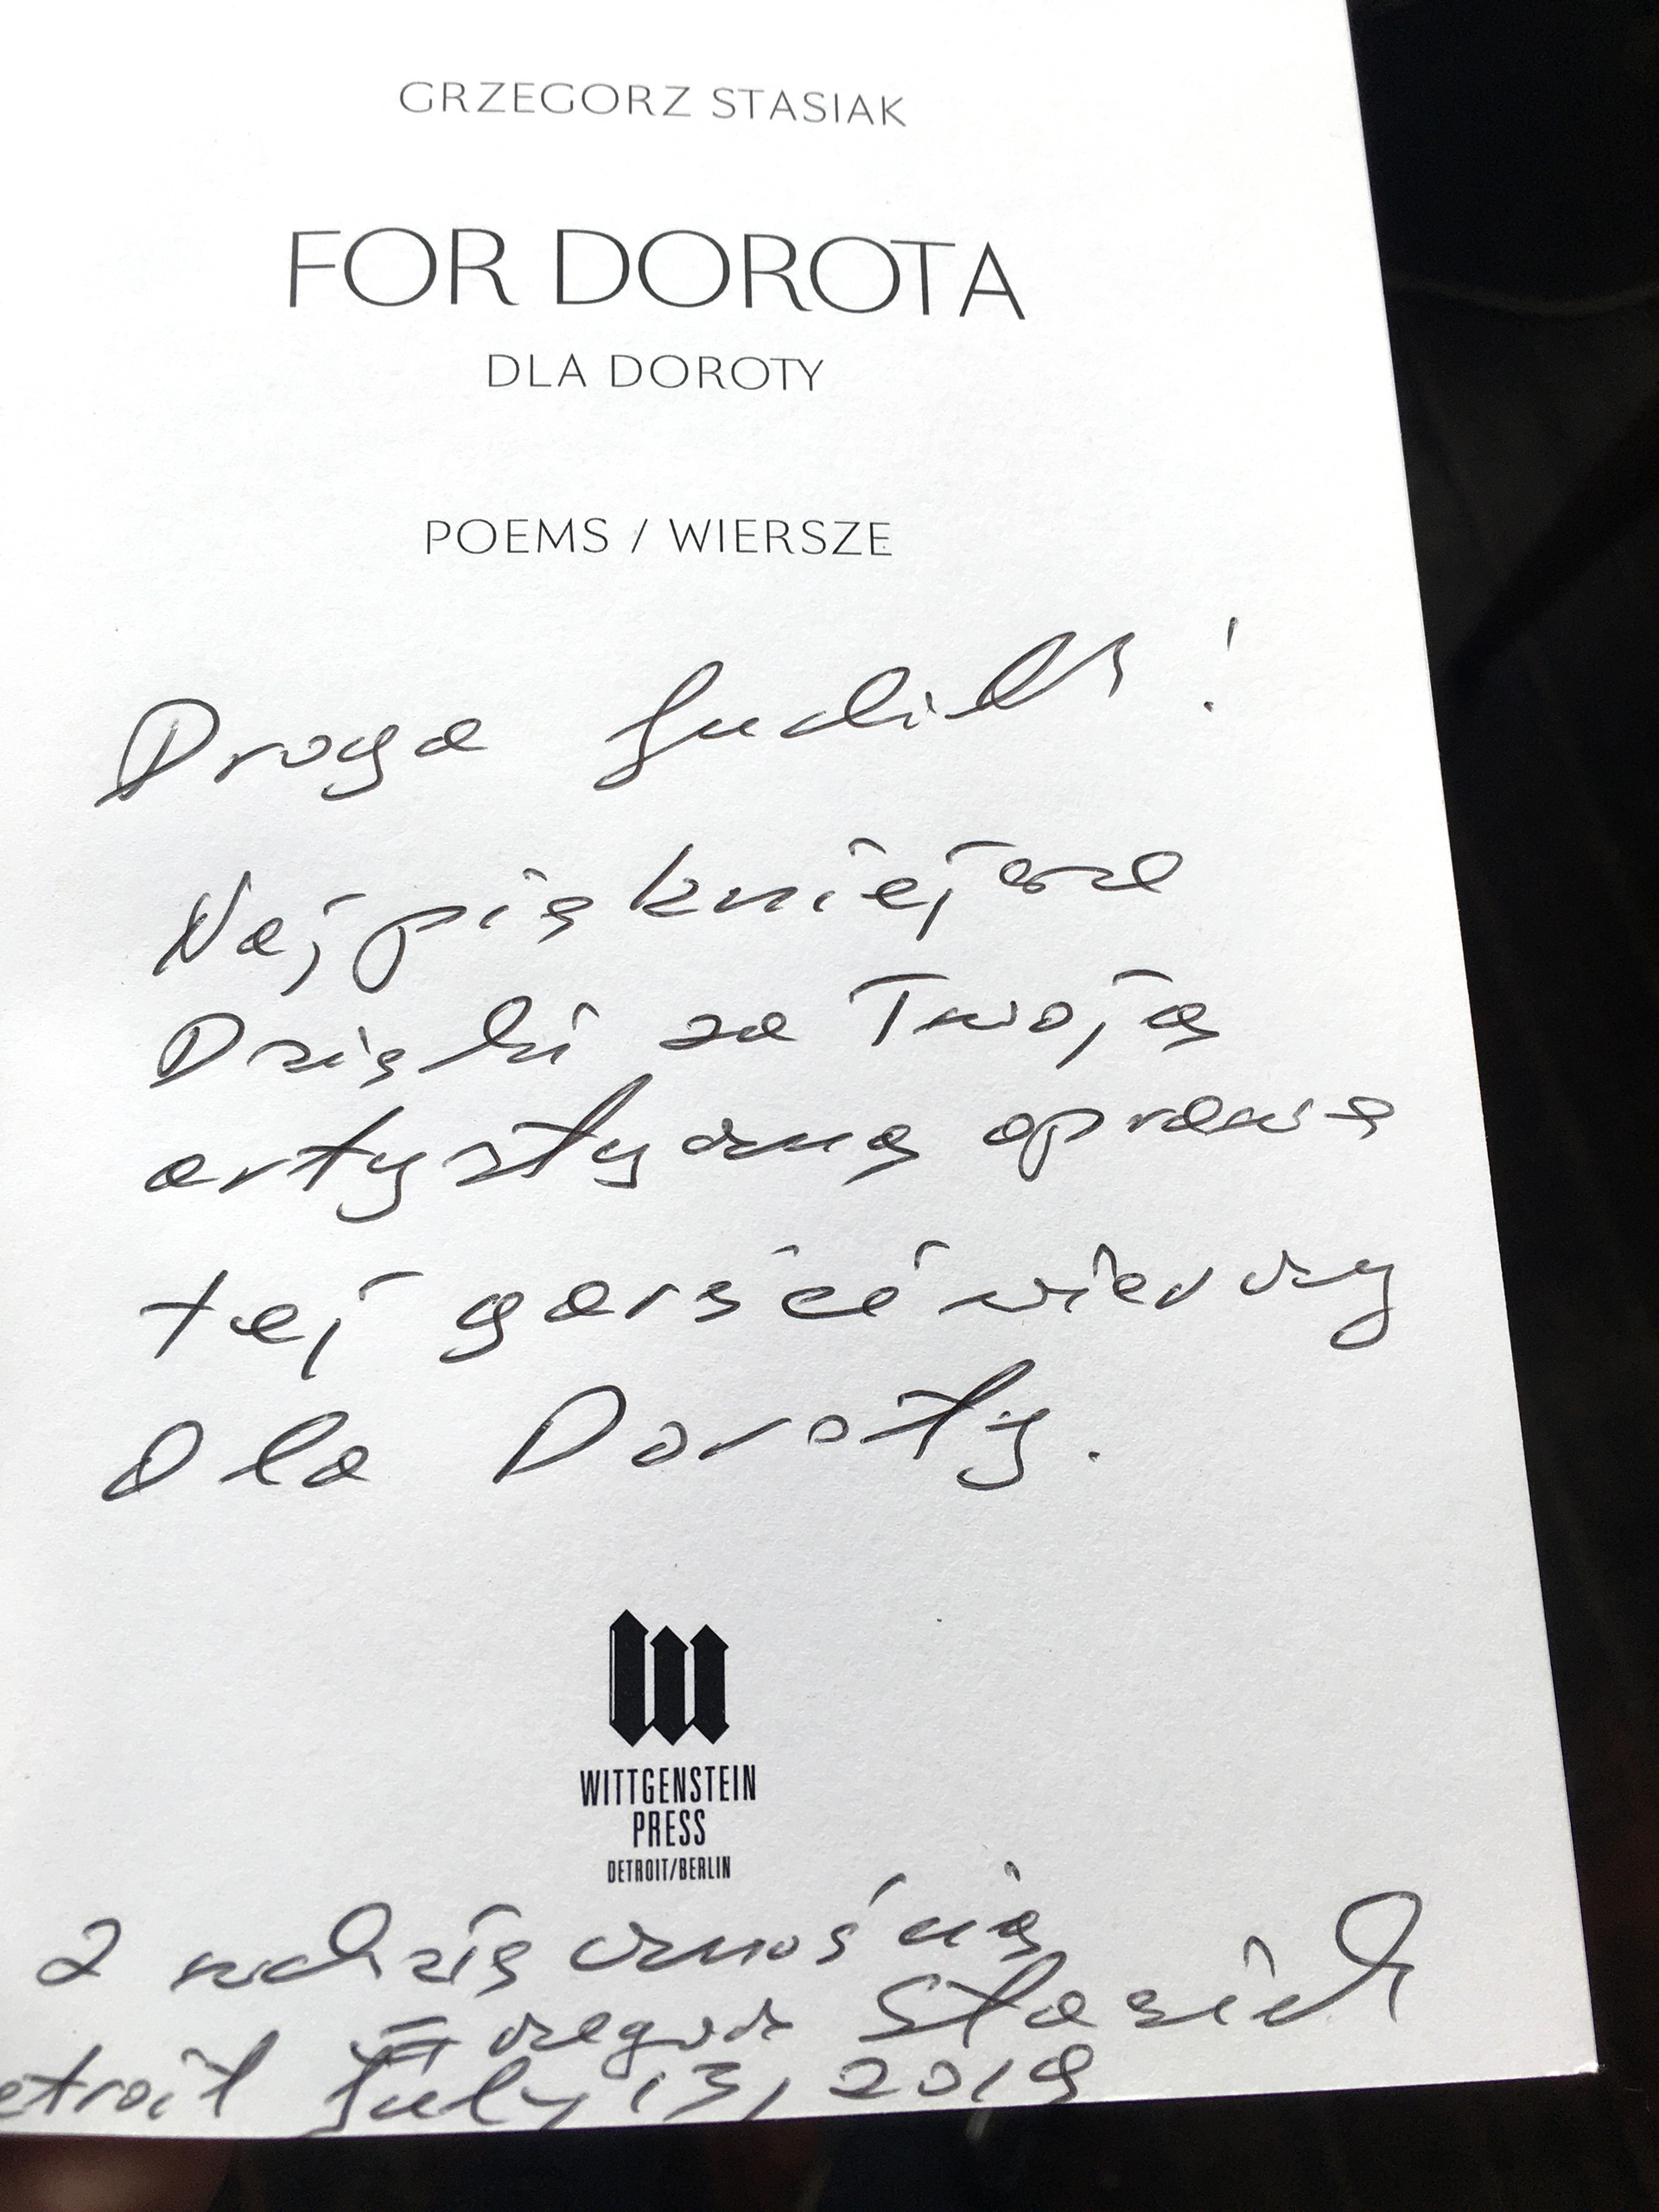 GRZEGORZ STASIAK
FOR DOROTA
DLA DOROTY
POEMS / WIERSZE
Droga Judith!
Najpiękniejsze
Dzięki za Twoją
artystyczną oprawę
tej garści wierszy
Dla Doroty.
WITTGENSTEIN
PRESS
DETROIT/BERLIN
Z wdzięcznością
Grzegorz Stasiak
etroit July 13, 2019